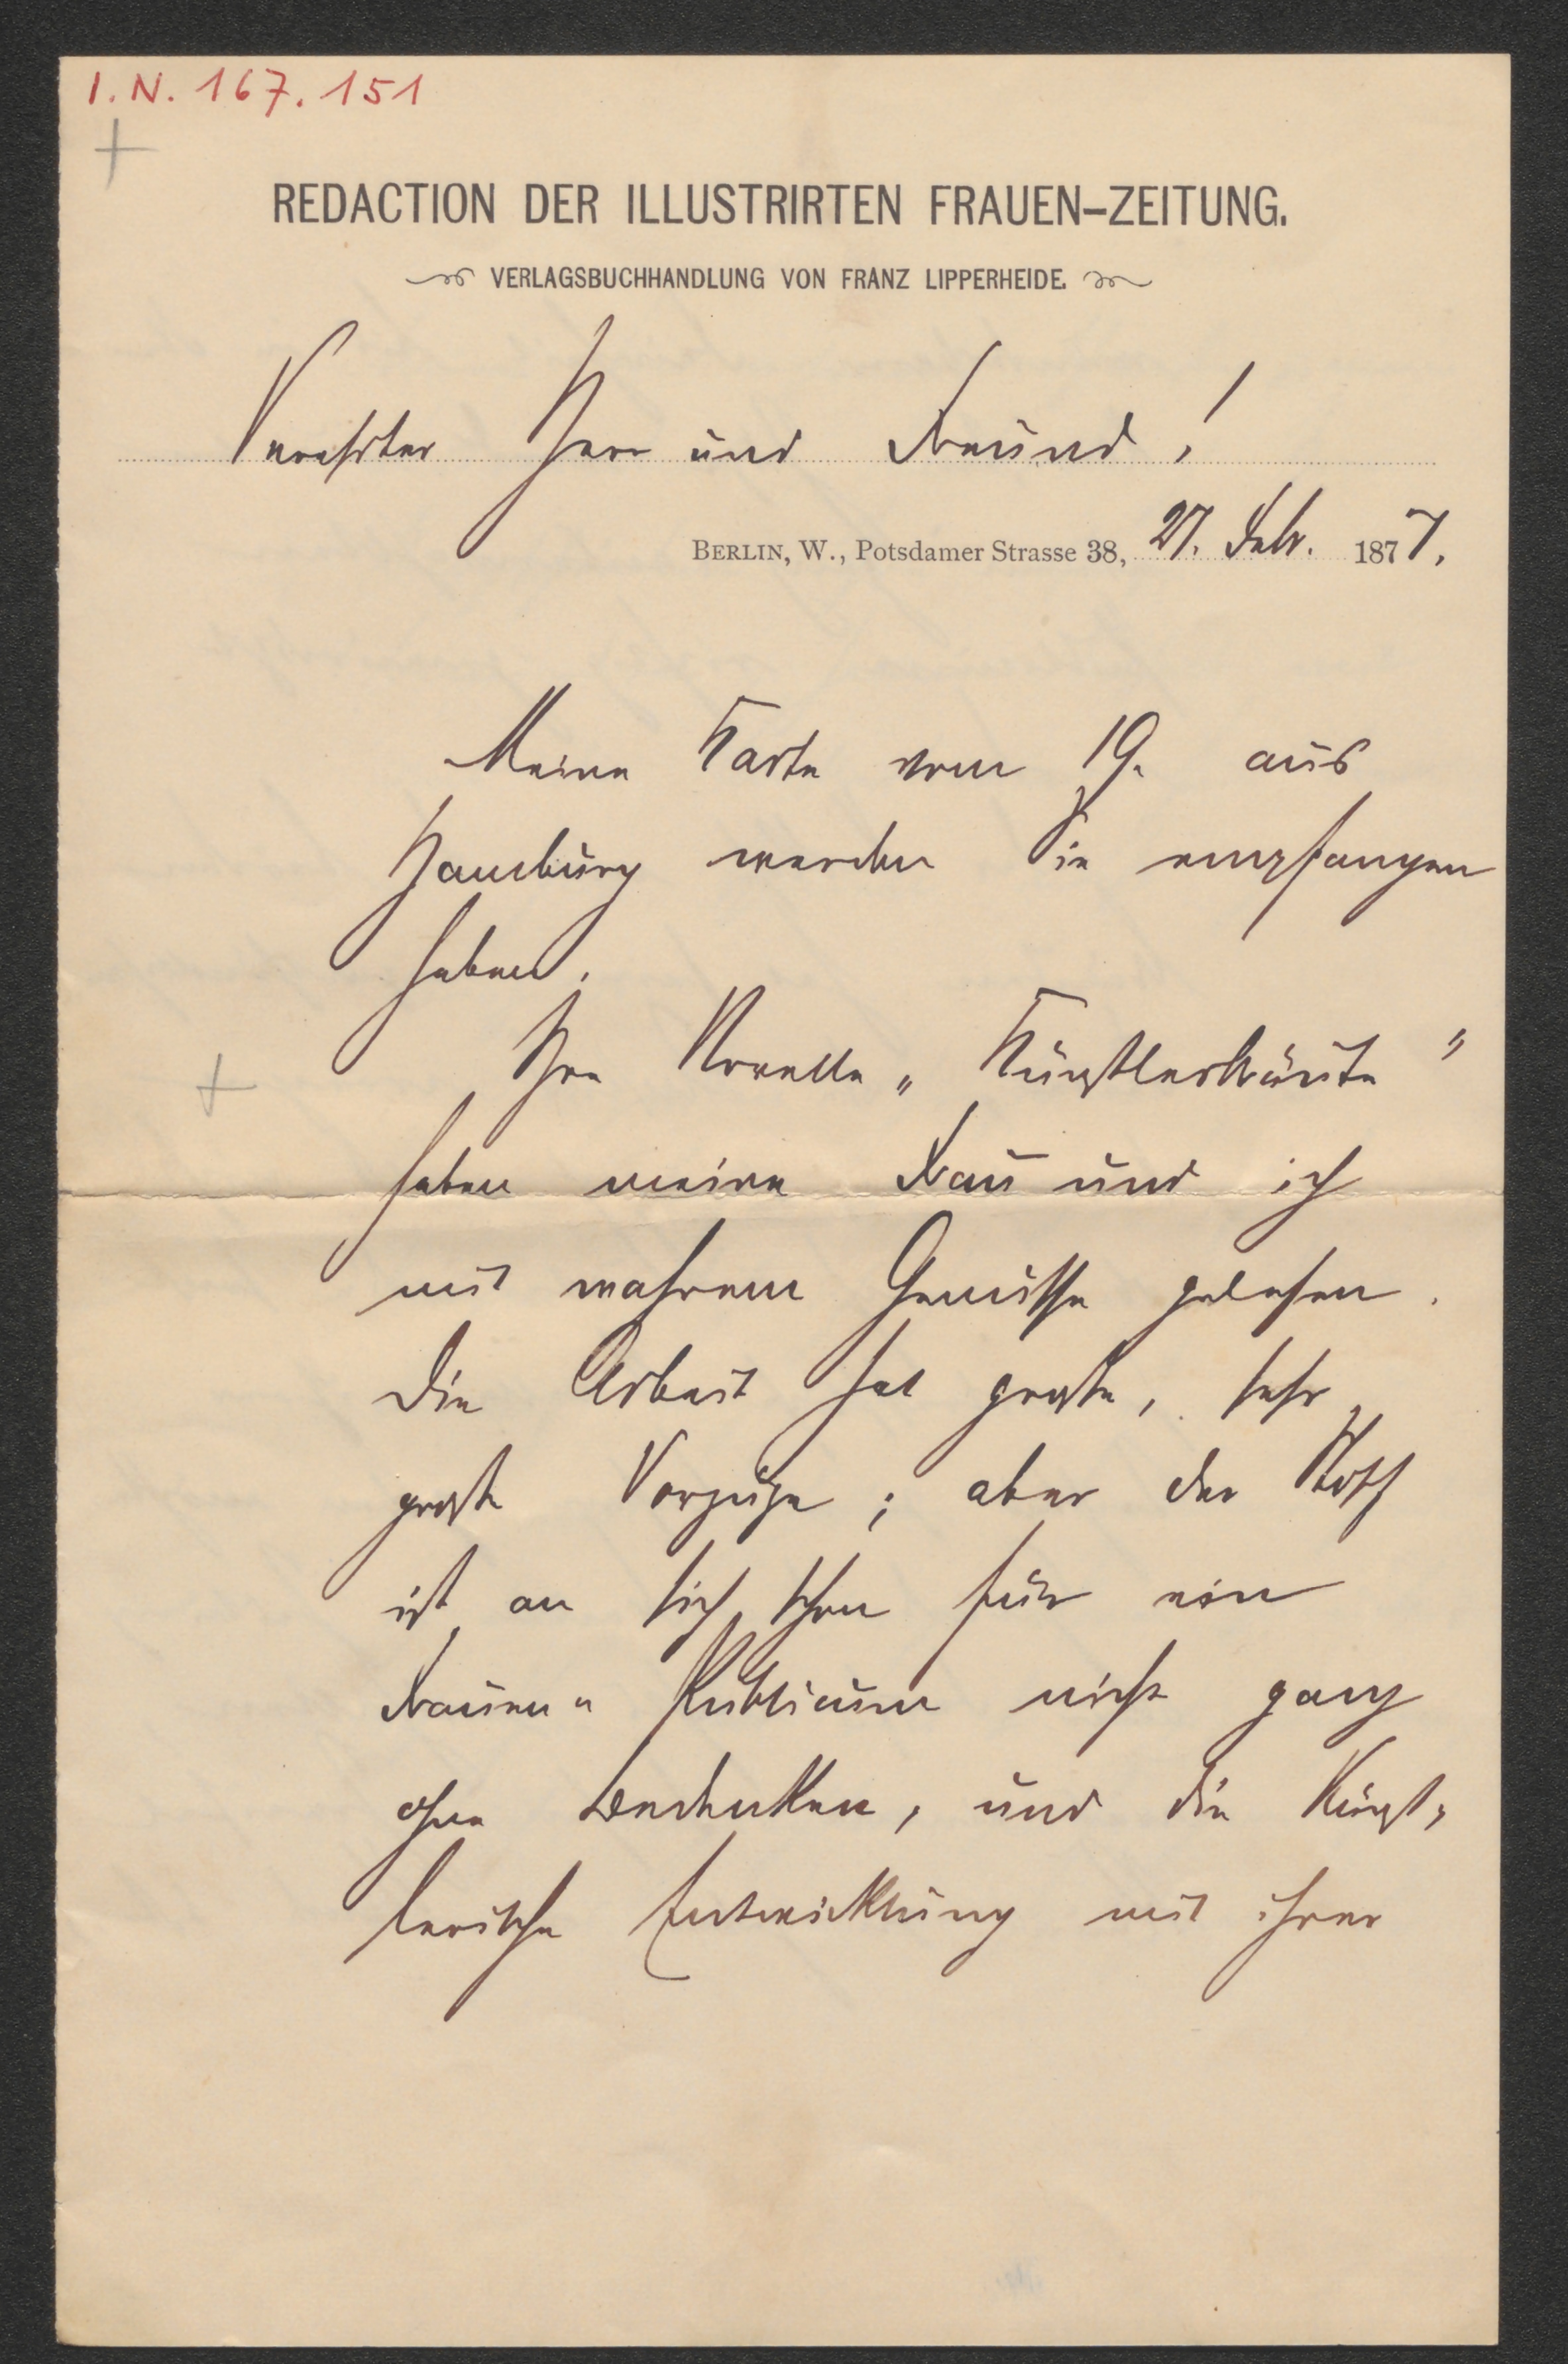 I. N. 167.151
REDACTION DER ILLUSTRIRTEN FRAUEN-ZEITUNG.
VERLAGSBUCHHANDLUNG VON FRANZ LIPPERHEIDE.
Verehrter Herr und Freund!
BERLIN, W., Potsdamer Strasse 38, 27. Febr. 1877.
Meine Karte vom 19. aus
Hamburg werden Sie empfangen
haben.
Ihre Novelle „Künstlerbräute"
haben meine Frau und ich
mit wahrem Genusse gelesen.
Die Arbeit hat große, sehr
große Vorzüge; aber der Stoff
ist an sich schon für ein
Frauen-Publicum nicht ganz
ohne Bedenken, und die künst-
lerische Entwicklung mit ihrer